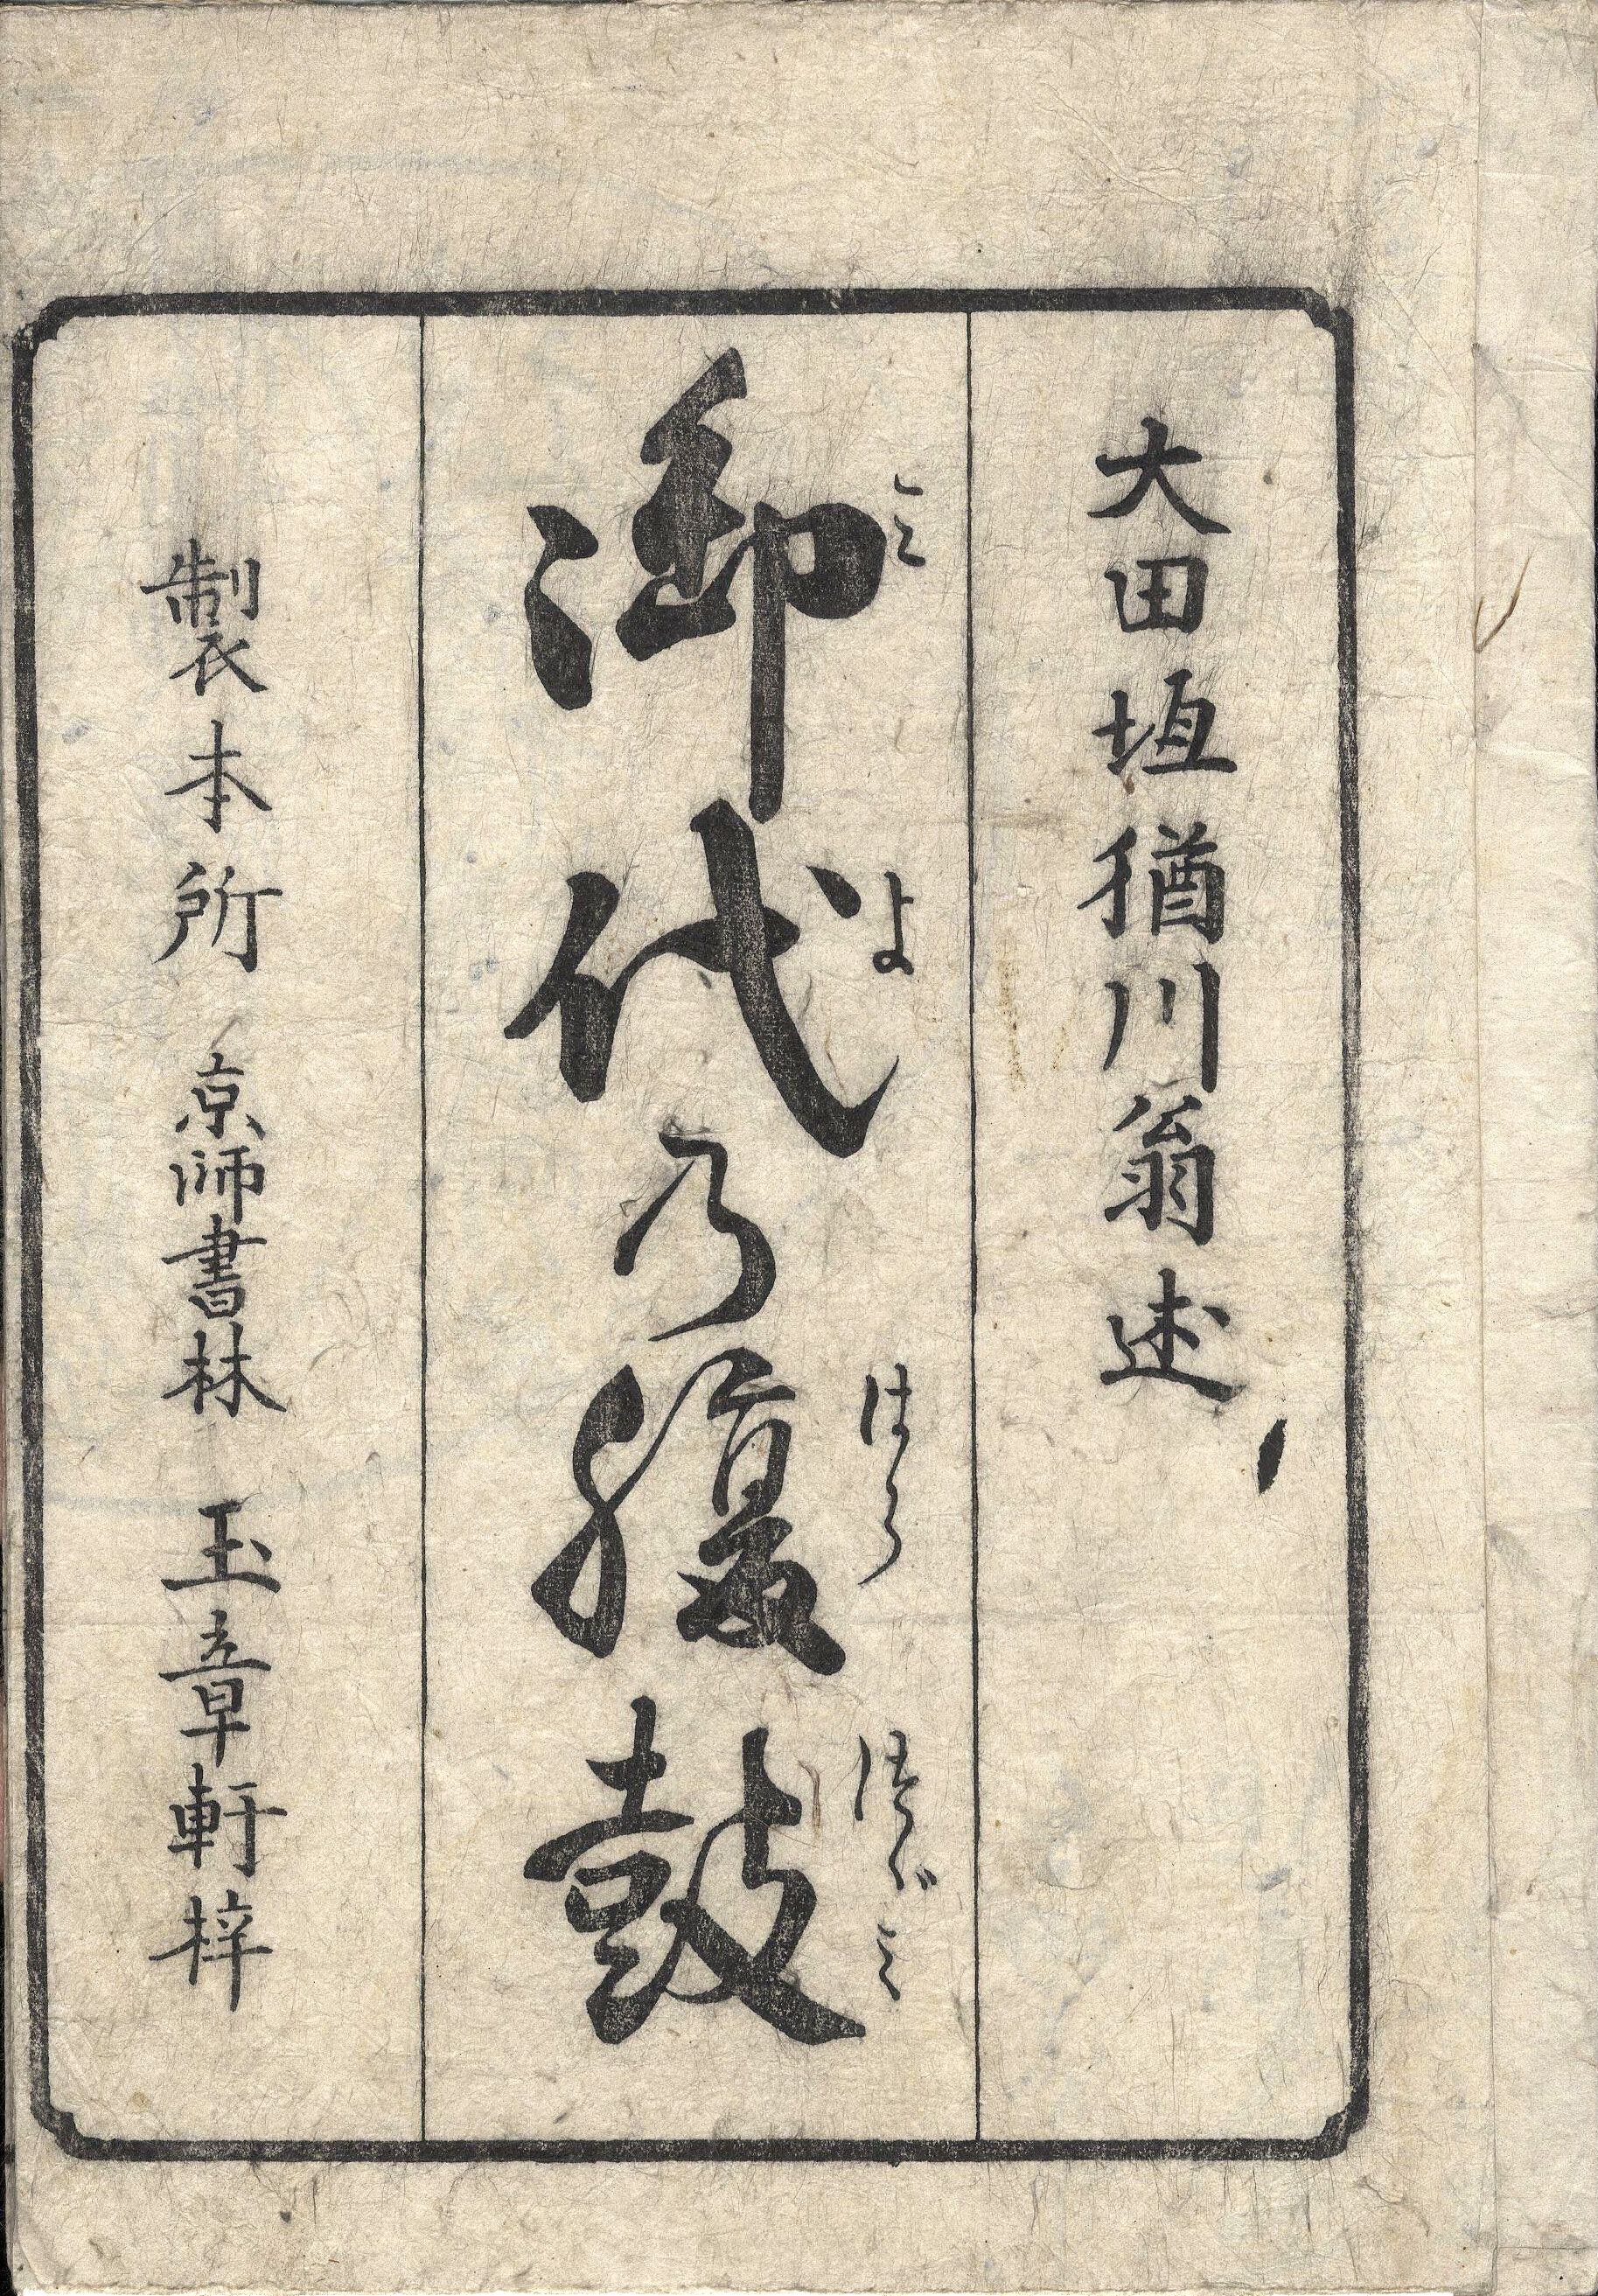 大田垣猶川翁述
御代乃腹鼓
みよ　はらつゞみ
製本所　京師書林　玉章軒梓